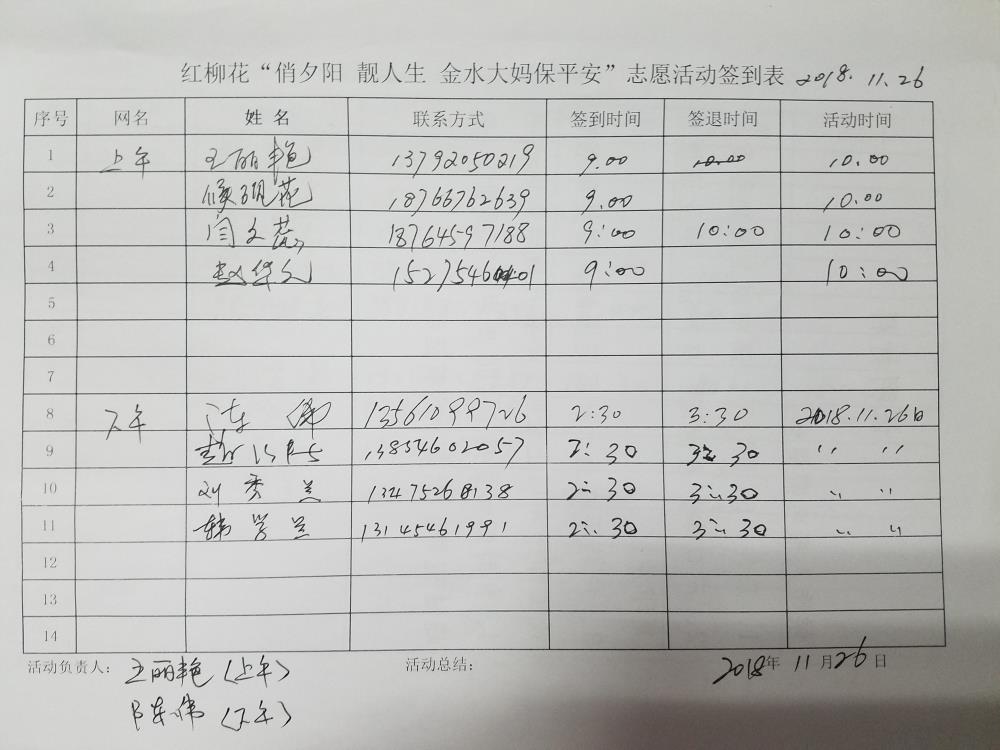 红柳花“俏夕阳 靓人生 金水大妈保平安”志愿活动签到表 2018.11.26
序号 网名 姓名 联系方式 签到时间 签退时间 活动时间
1 上午 王丽艳 13792050219 9.00 10.00 10.00
2 18766762639 9.00 10.00
3 闫文 18764597188 9:00 10:00 10:00
4 赵华文 1527546 01 9:00 10:00
5
6
7
8 下午 陈伟 13561099726 2:30 3:30 2018.11.26日
9 13854602057 2:30 3:30 〃 〃
10 刘秀兰 13475268138 2:30 3:30 〃 〃
11 韩学兰 13145461991 2:30 3:30 〃 〃
12
13
14
活动负责人: 王丽艳(上午) 活动总结: 2018年11月26日
陈伟(下午)